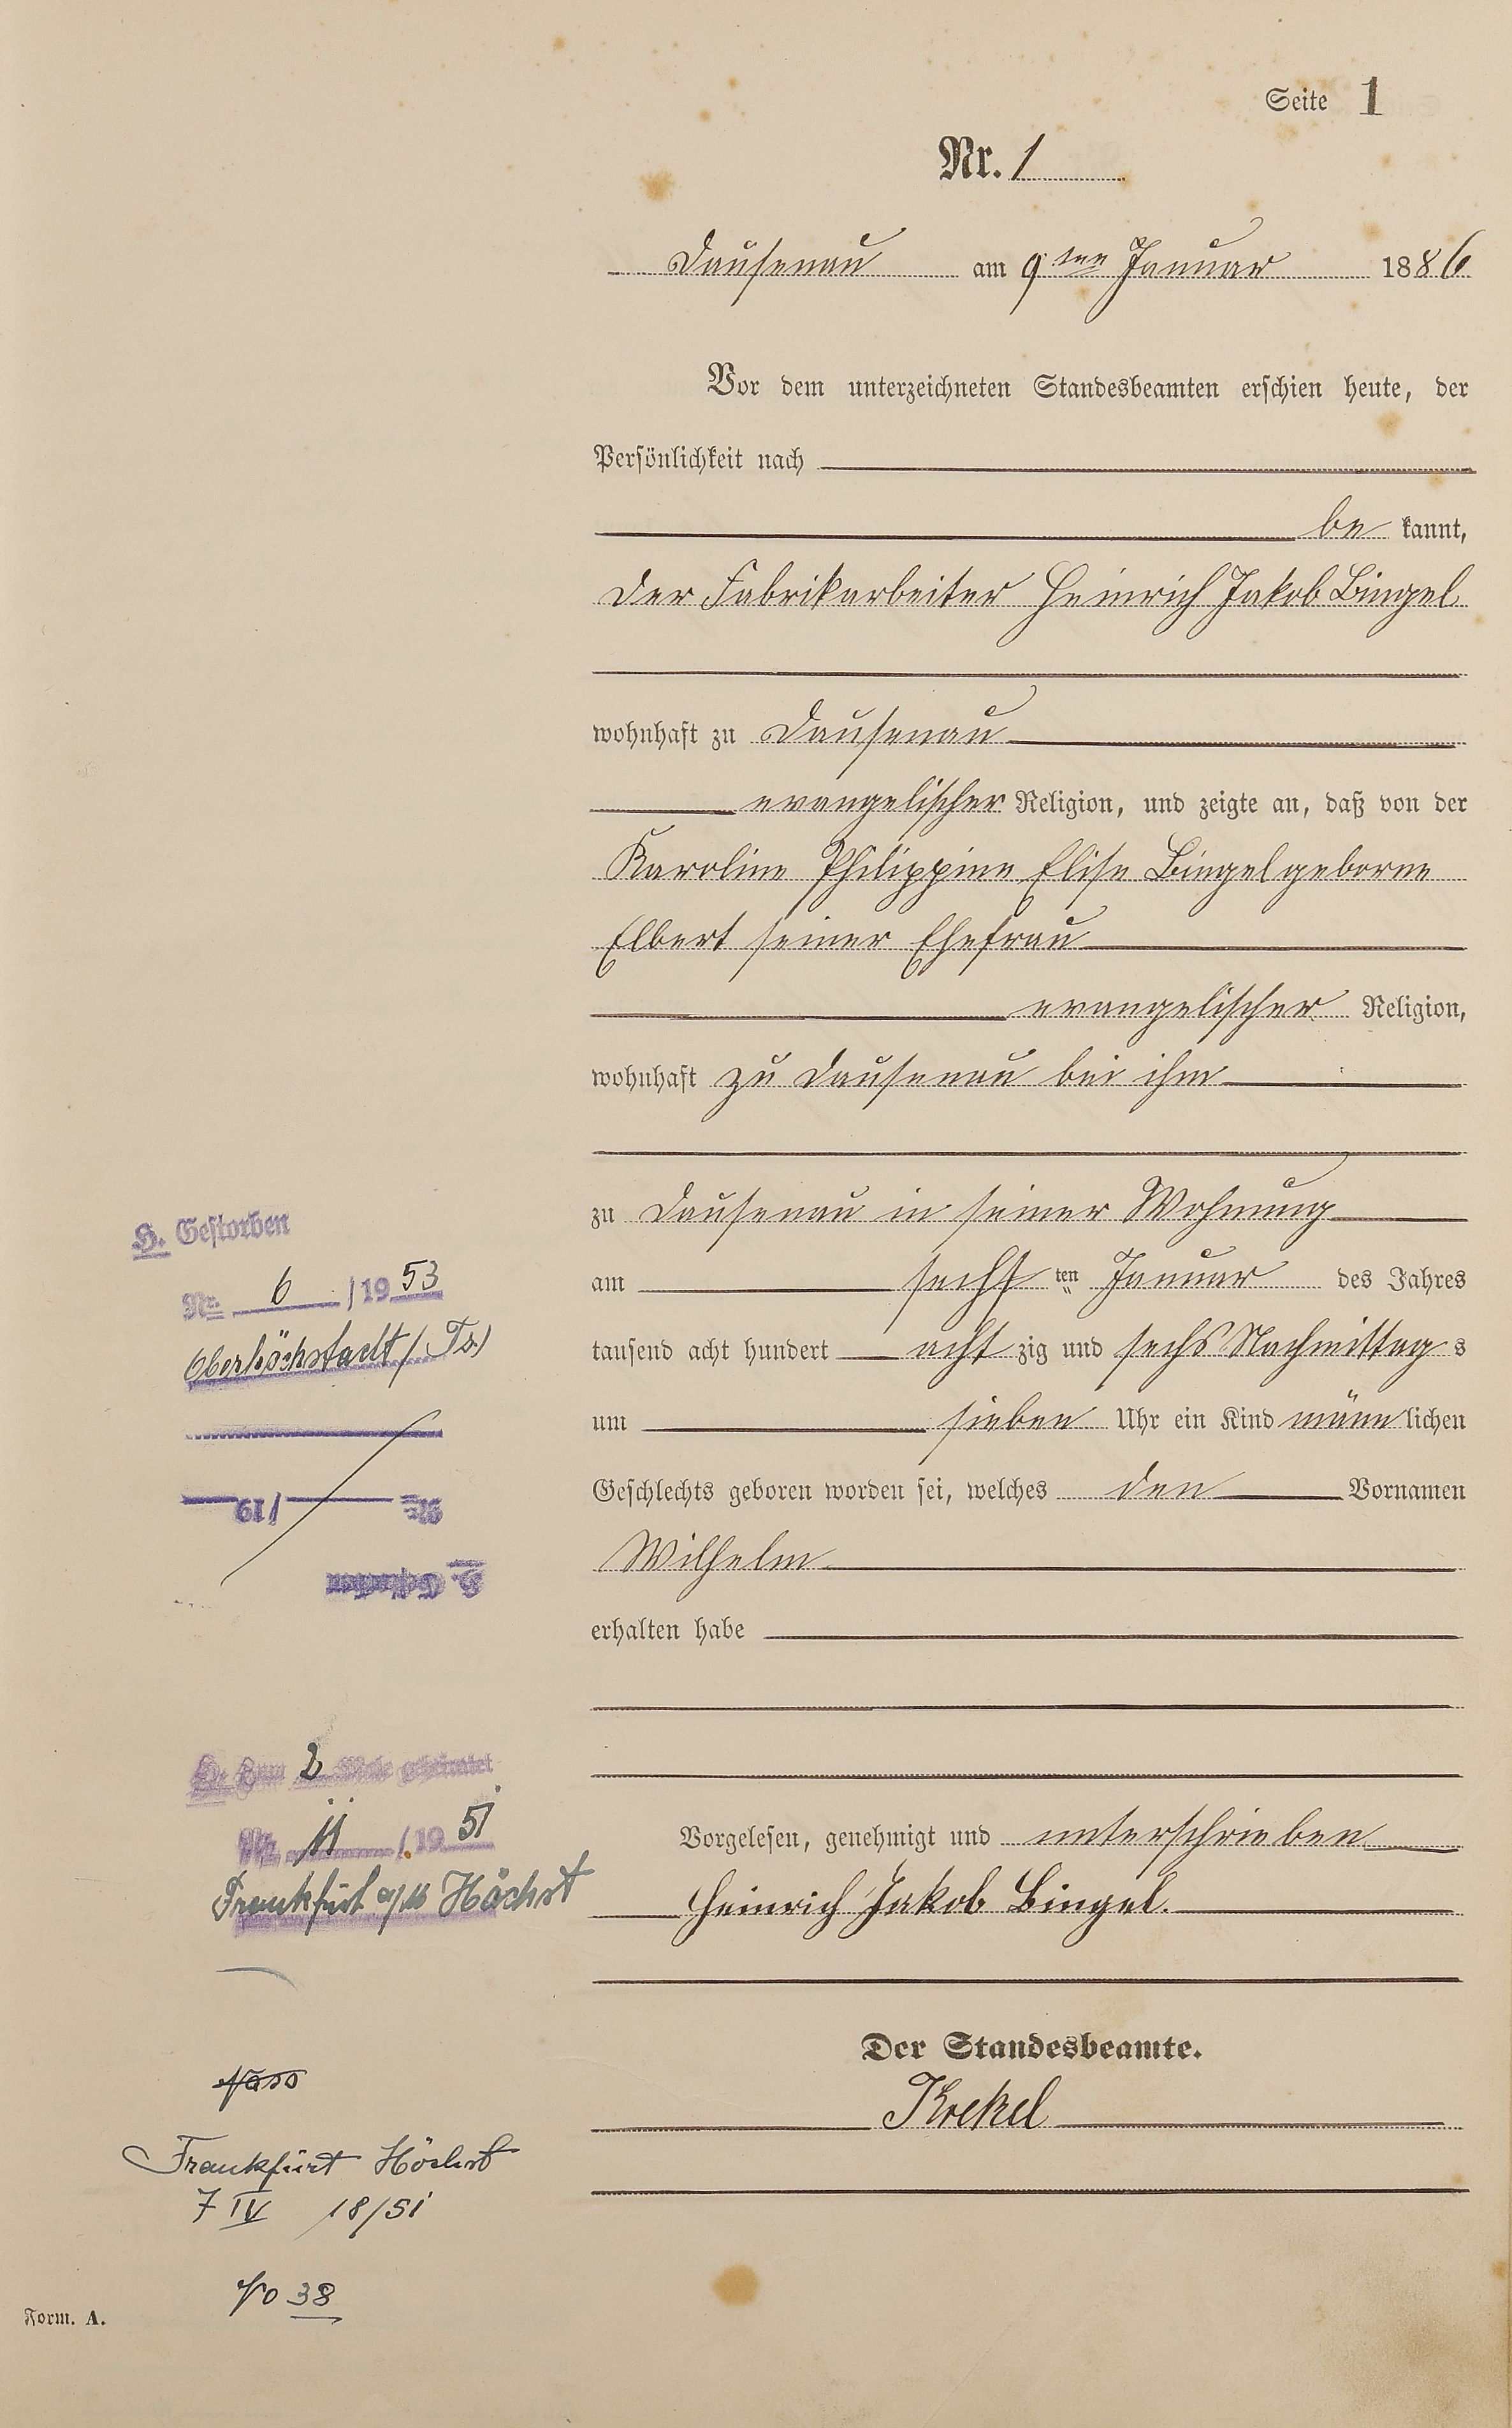 Seite 1
Nr. 1
Dausenau am 9ten Januar 1886
Vor dem unterzeichneten Standesbeamten erschien heute, der
Persönlichkeit nach
be kannt,
der Fabrikarbeiter Heinrich Jakob Bingel
wohnhaft zu Dausenau
evangelischer Religion, und zeigte an, daß von der
Karoline Philippine Elise Bingel geborne
Elbert seiner Ehefrau
evangelischer Religion,
wohnhaft zu Dausenau bei ihm
zu Dausenau in seiner Wohnung
am sechs ten Januar des Jahres
tausend acht hundert acht zig und sechs Nachmittag s
um sieben Uhr ein Kind männ lichen
Geschlechts geboren worden sei, welches den Vornamen
Wilhelm
erhalten habe
Vorgelesen, genehmigt und unterschrieben
Heinrich Jakob Bingel.
Der Standesbeamte.
Krekel
H. Gestorben
Nr. 6 /1953
Oberhöchstadt / Ts.)
Nr. /19
H. Gestorben
H. Zum 2 Male geheiratet
Nr. 11 /1951
Frankfurt a/M Höchst
Frankfurt Höchst
7 IV 18/51
38
Form. A.